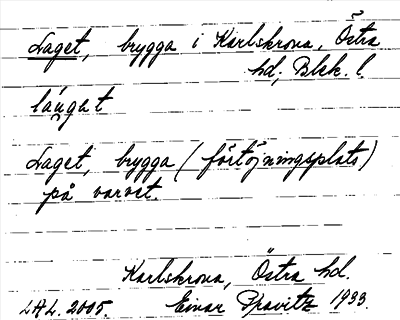 Laget, brygga i Karlskrona, Östra
hd, Blek. l.
láu̯gat
Laget, brygga (förtöjningsplats)
på varvet.
Karlskrona, Östra hd.
LAL. 2005. Einar 1933.